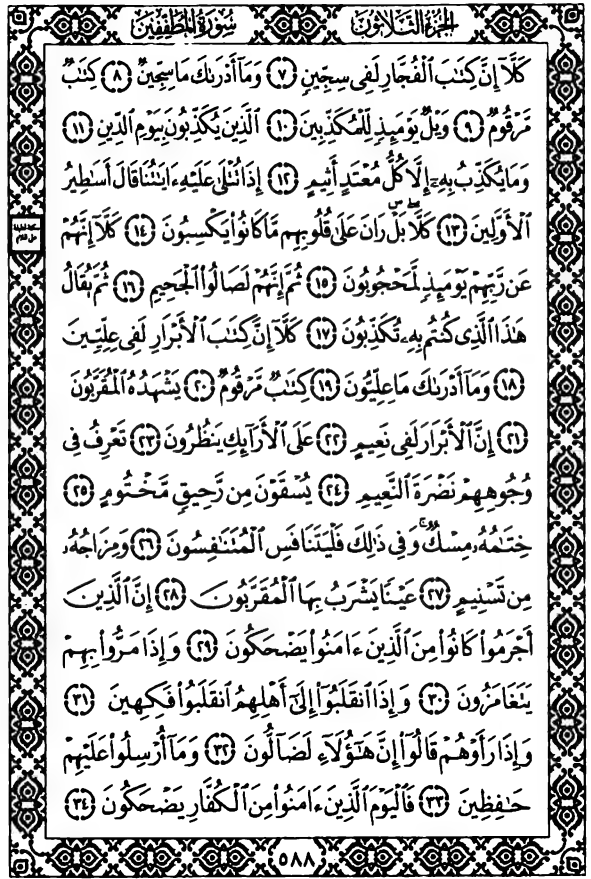 الجزء الثلاثون سورة المطففين
كَلَّآ إِنَّ كِتَٰبَ ٱلْفُجَّارِ لَفِى سِجِّينٍ ﴿٧﴾ وَمَآ أَدْرَىٰكَ مَا سِجِّينٌ ﴿٨﴾ كِتَٰبٌ
مَّرْقُومٌ ﴿٩﴾ وَيْلٌ يَوْمَئِذٍ لِّلْمُكَذِّبِينَ ﴿١٠﴾ ٱلَّذِينَ يُكَذِّبُونَ بِيَوْمِ ٱلدِّينِ ﴿١١﴾
وَمَا يُكَذِّبُ بِهِۦٓ إِلَّا كُلُّ مُعْتَدٍ أَثِيمٍ ﴿١٢﴾ إِذَا تُتْلَىٰ عَلَيْهِ ءَايَٰتُنَا قَالَ أَسَٰطِيرُ
ٱلْأَوَّلِينَ ﴿١٣﴾ كَلَّا ۖ بَلْ ۜ رَانَ عَلَىٰ قُلُوبِهِم مَّا كَانُوا۟ يَكْسِبُونَ ﴿١٤﴾ كَلَّآ إِنَّهُمْ
عَن رَّبِّهِمْ يَوْمَئِذٍ لَّمَحْجُوبُونَ ﴿١٥﴾ ثُمَّ إِنَّهُمْ لَصَالُوا۟ ٱلْجَحِيمِ ﴿١٦﴾ ثُمَّ يُقَالُ
هَٰذَا ٱلَّذِى كُنتُم بِهِۦ تُكَذِّبُونَ ﴿١٧﴾ كَلَّآ إِنَّ كِتَٰبَ ٱلْأَبْرَارِ لَفِى عِلِّيِّينَ
﴿١٨﴾ وَمَآ أَدْرَىٰكَ مَا عِلِّيُّونَ ﴿١٩﴾ كِتَٰبٌ مَّرْقُومٌ ﴿٢٠﴾ يَشْهَدُهُ ٱلْمُقَرَّبُونَ
﴿٢١﴾ إِنَّ ٱلْأَبْرَارَ لَفِى نَعِيمٍ ﴿٢٢﴾ عَلَى ٱلْأَرَآئِكِ يَنظُرُونَ ﴿٢٣﴾ تَعْرِفُ فِى
وُجُوهِهِمْ نَضْرَةَ ٱلنَّعِيمِ ﴿٢٤﴾ يُسْقَوْنَ مِن رَّحِيقٍ مَّخْتُومٍ ﴿٢٥﴾
خِتَٰمُهُۥ مِسْكٌ ۚ وَفِى ذَٰلِكَ فَلْيَتَنَافَسِ ٱلْمُتَنَٰفِسُونَ ﴿٢٦﴾ وَمِزَاجُهُۥ
مِن تَسْنِيمٍ ﴿٢٧﴾ عَيْنًا يَشْرَبُ بِهَا ٱلْمُقَرَّبُونَ ﴿٢٨﴾ إِنَّ ٱلَّذِينَ
أَجْرَمُوا۟ كَانُوا۟ مِنَ ٱلَّذِينَ ءَامَنُوا۟ يَضْحَكُونَ ﴿٢٩﴾ وَإِذَا مَرُّوا۟ بِهِمْ
يَتَغَامَزُونَ ﴿٣٠﴾ وَإِذَا ٱنقَلَبُوٓا۟ إِلَىٰٓ أَهْلِهِمُ ٱنقَلَبُوا۟ فَكِهِينَ ﴿٣١﴾
وَإِذَا رَأَوْهُمْ قَالُوٓا۟ إِنَّ هَٰٓؤُلَآءِ لَضَآلُّونَ ﴿٣٢﴾ وَمَآ أُرْسِلُوا۟ عَلَيْهِمْ
حَٰفِظِينَ ﴿٣٣﴾ فَٱلْيَوْمَ ٱلَّذِينَ ءَامَنُوا۟ مِنَ ٱلْكُفَّارِ يَضْحَكُونَ ﴿٣٤﴾
٥٨٨